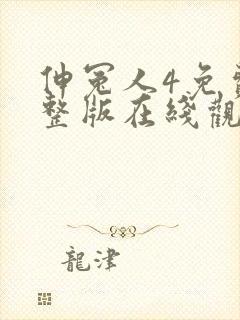 伸冤人4免
整版在綫觀
龍津